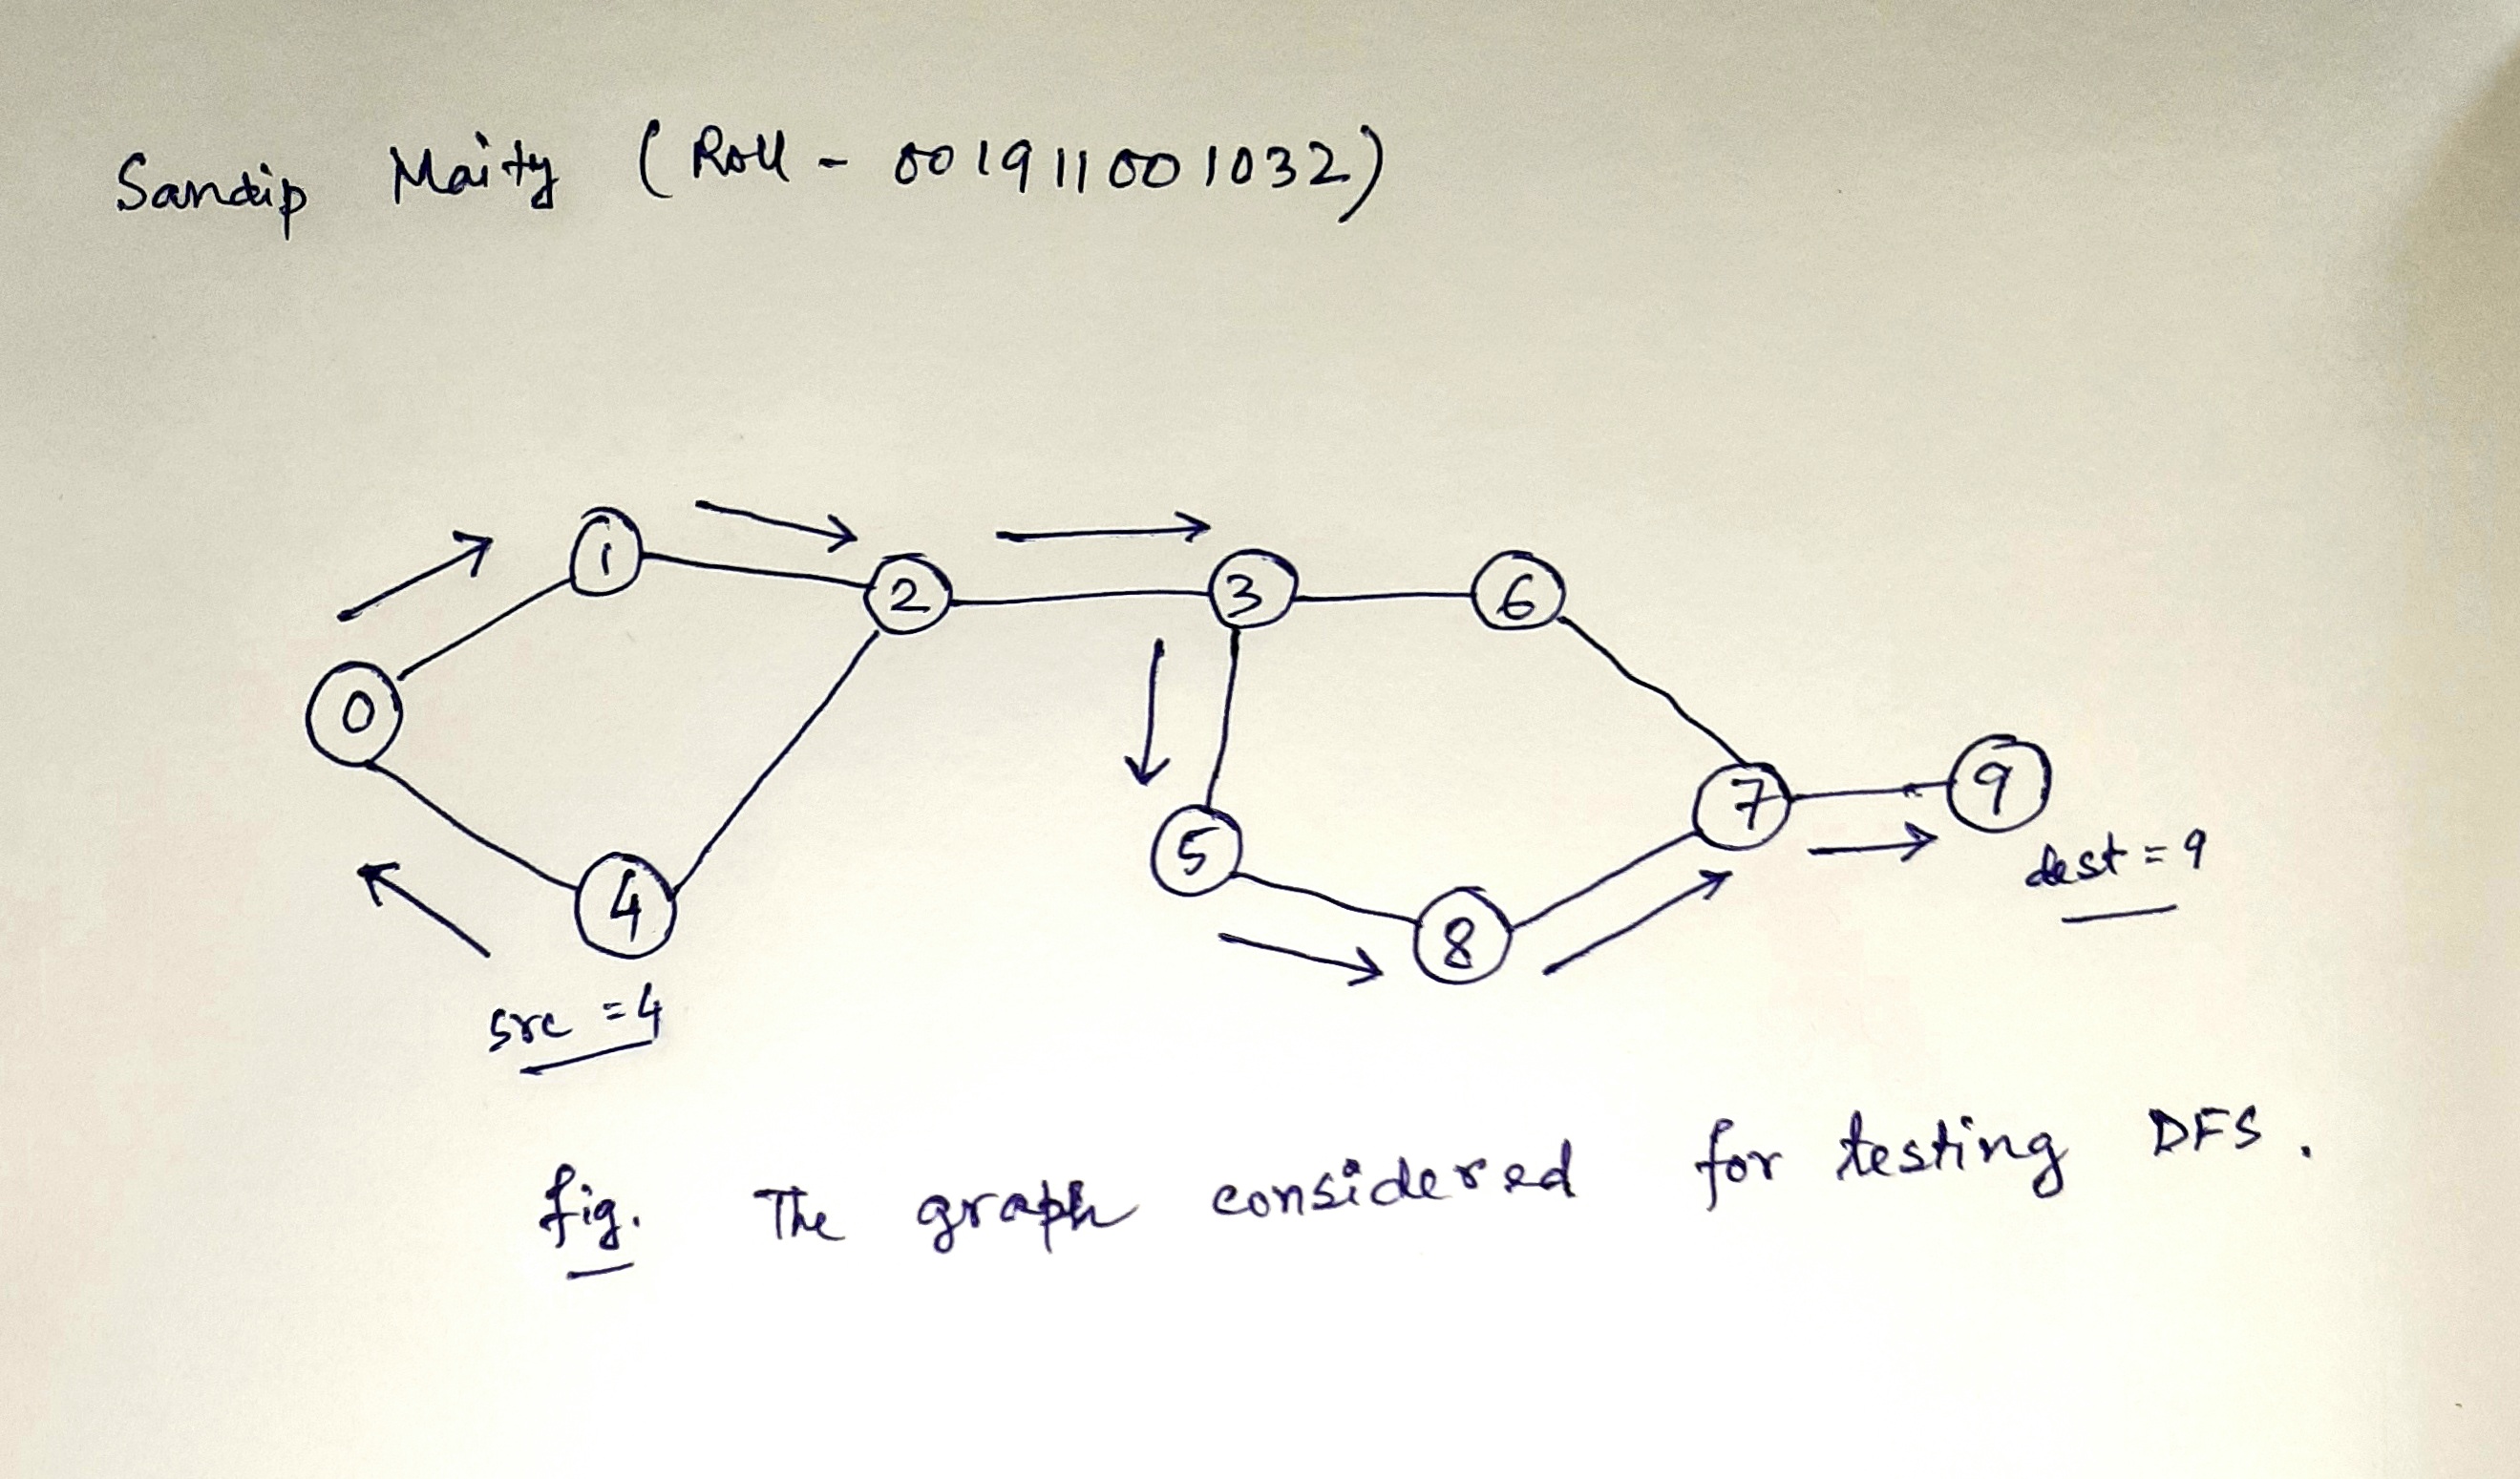 Sandip Maity (Roll - 001911001032)
1
2
3
6
0
7
9
dest = 9
5
4
8
src = 4
fig. The graph considered for testing DFS.